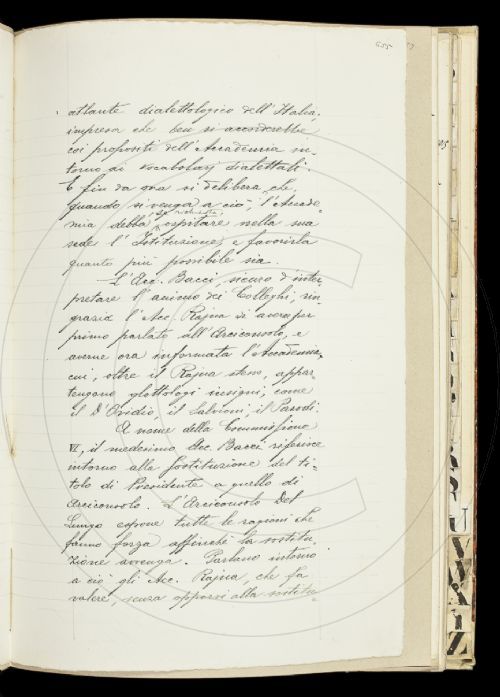 655
atlante dialettologico dell'Italia,
impresa che ben si accorderebbe
coi propositi dell'Accademia in-
torno ai vocabolarj dialettali.
E fin da ora si delibera che,
quando si venga a ciò, l'Accade-
mia debba, se richiesta, ospitare nella sua
sede l'Istituzione, e favorirla
quanto più possibile sia.
L'Acc. Bacci, sicuro d'inter-
pretare l'animo dei Colleghi, rin-
grazia l'Acc. Rajna di averne per
primo parlato all'Arciconsolo, e
averne ora informata l'Accademia,
cui, oltre il Rajna stesso, appar-
tengono glottologi insigni, come
il D'Ovidio, il Salvioni, il Parodi.
A nome della Commissione
VI, il medesimo Acc. Bacci riferisce
intorno alla sostituzione del ti-
tolo di Presidente a quello di
Arciconsolo. L'Arciconsolo Del
Lungo espone tutte le ragioni che
fanno forza affinché la sostitu-
zione avvenga. Parlano intorno
a ciò gli Acc. Rajna, che fa
valere, senza opporsi alla sostitu-